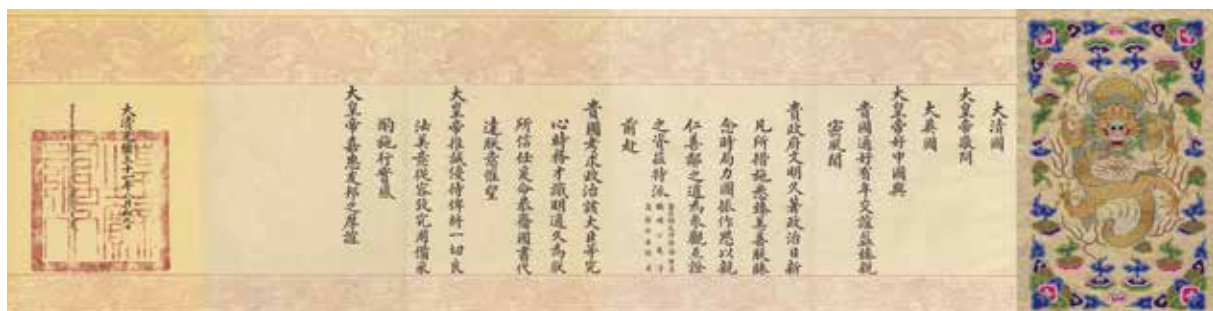 大清國
大皇帝敬問
大英國
大皇帝好中國與
貴國通好有年交誼益臻親
密夙聞
貴政府文明久著政治日新
凡所措施悉臻美善朕眷
念時局力圖振作思以親
仁善鄰之道為參觀互證
之資茲特派
前赴
貴國考求政治該大臣等究
心時務才識明通久為朕
所信任爰命恭齎國書代
達朕意惟望
大皇帝推誠優待俾將一切良
法美意從容考究用備采
酌施行實感
大皇帝嘉惠友邦之厚誼
大清光緒三十一年八月